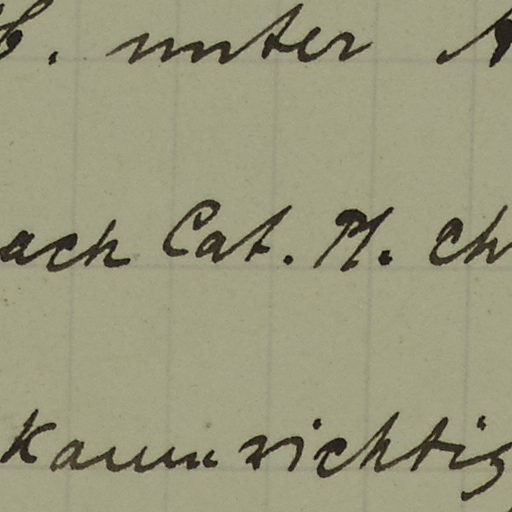 . unter A
ach Cat. Pl. ch
Kaum richtig